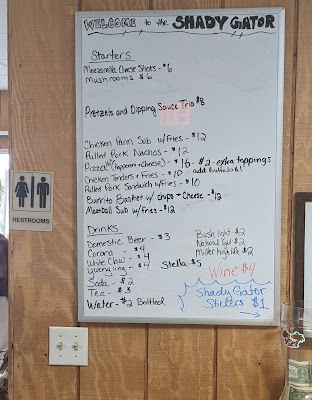 WELCOME to the SHADY GATOR
Starters
Mozzarella Cheese Sticks - $6
Mushrooms $6
Pretzels and Dipping Sauce Trio $8
Chicken Parm Sub w/Fries - $12
Pulled Pork Nachos - $12
Pizza (Pepperoni + cheese) - $16 - $2 - extra toppings
Chicken Tenders + Fries - $10 - add Buffalo $1
Pulled Pork Sandwich w/Fries - $10
Burrito Basket w/ chips + Cheese - $12
Meatball Sub w/fries - $12
Drinks
Domestic Beer - $3
Corona - $4
White Claw - $4
Yuengling - $4
Soda - $2
Tea - $3
Water - $2 Bottled
Stella - $5
Bush light $2
Natural light $2
Miller high life $2
Wine $4
Shady Gator
Stickers $1
RESTROOMS